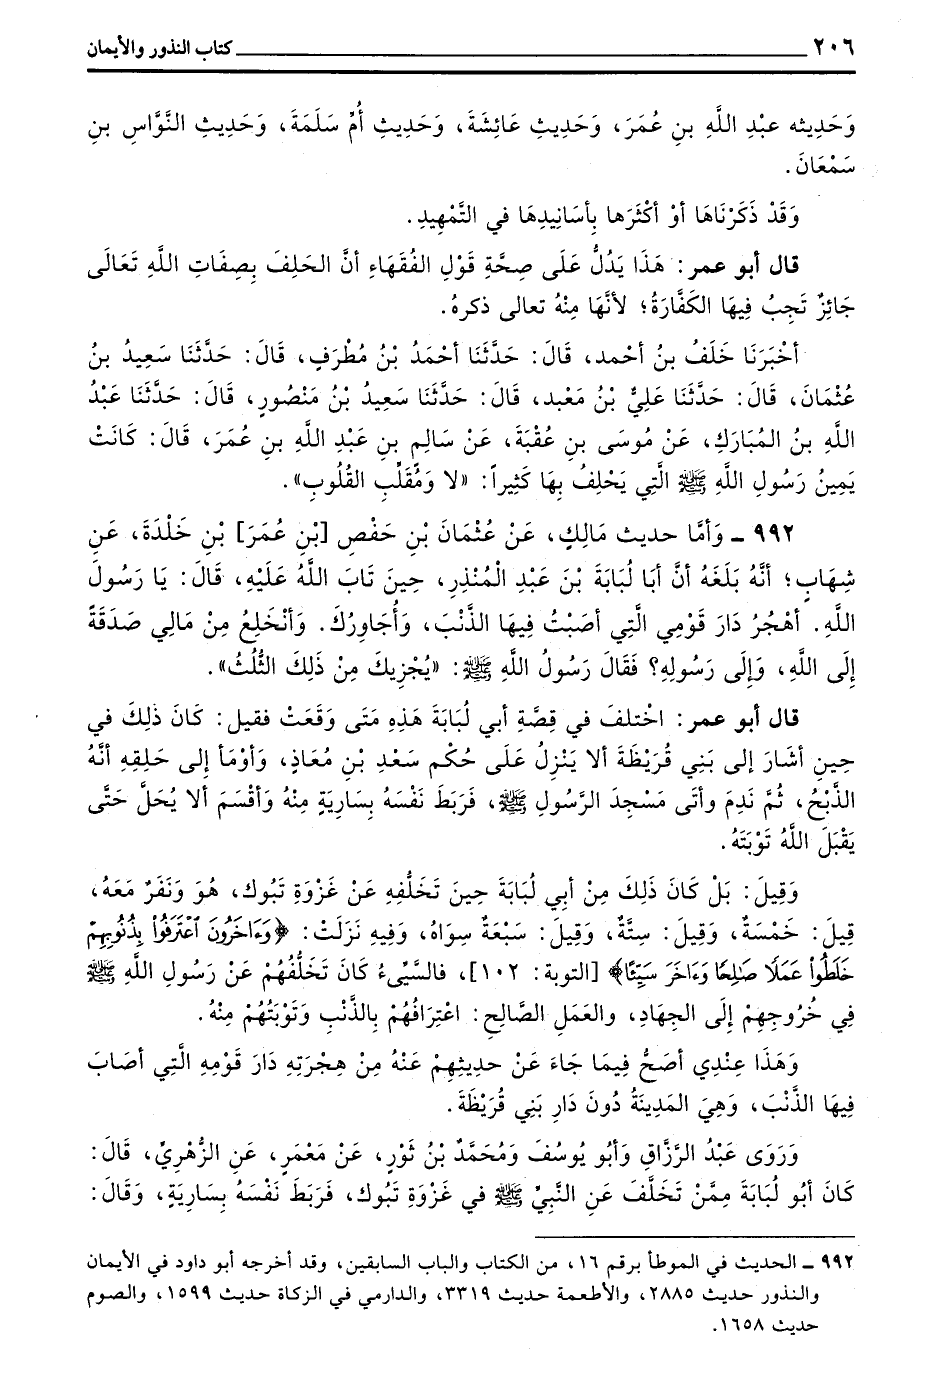 ٢٠٦ كتاب النذور والأيمان
وَحَدِيثه عبْدِ اللَّهِ بنِ عُمَرَ، وَحَدِيثِ عَائِشَةَ، وَحَدِيثِ أُمِّ سَلَمَةَ، وَحَدِيثِ النَّوَّاسِ بنِ
سَمْعَانَ.
وَقَدْ ذَكَرْنَاهَا أوْ أكْثَرَها بِأسَانِيدِهَا في التَّمْهِيدِ.
قال أبو عمر: هَذَا يَدُلُّ عَلَى صِحَّةِ قَوْلِ الفُقَهَاءِ أنَّ الحَلِفَ بِصِفَاتِ اللَّهِ تَعَالَى
جَائِزٌ تَجِبُ فِيهَا الكَفَّارَةُ؛ لأنَّهَا مِنْهُ تعالى ذكرهُ.
أخْبَرَنَا خَلَفُ بنُ أحْمد، قَالَ: حَدَّثَنَا أحْمَدُ بْنُ مُطْرَفٍ، قَالَ: حَدَّثَنَا سَعِيدُ بنُ
عُثْمَانَ، قَالَ: حَدَّثَنَا عَلِيُّ بْنُ مَعْبد، قَالَ: حَدَّثَنَا سَعِيدُ بْنُ مَنْصُورٍ، قَالَ: حَدَّثَنَا عَبْدُ
اللَّهِ بنُ المُبَارَكِ، عَنْ مُوسَى بنِ عُقْبَةَ، عَنْ سَالِمِ بنِ عَبْدِ اللَّهِ بنِ عُمَرَ، قَالَ: كَانَتْ
يَمِينُ رَسُولِ اللَّهِ ﷺ الَّتِي يَحْلِفُ بِهَا كَثِيراً: «لا وَمُقَلِّبِ القُلُوبِ».
٩٩٢ ـ وَأمَّا حديث مَالِكٍ، عَنْ عُثْمَانَ بْنِ حَفْصِ [بْنِ عُمَرَ] بْنِ خَلْدَةَ، عَنِ
شِهَابٍ؛ أنَّهُ بَلَغَهُ أنَّ أبَا لُبَابَةَ بْنَ عَبْدِ الْمُنْذِرِ، حِينَ تَابَ اللَّهُ عَلَيْهِ، قَالَ: يَا رَسُولَ
اللَّهِ. أهْجُرُ دَارَ قَوْمِي الَّتِي أصَبْتُ فِيهَا الذَّنْبَ، وَأُجَاوِرُكَ. وَأنْخَلِعُ مِنْ مَالِي صَدَقَةً
إلَى اللَّهِ، وَإلَى رَسُولِهِ؟ فَقَالَ رَسُولُ اللَّهِ ﷺ: «يُجْزِيكَ مِنْ ذَلِكَ الثُّلُثُ».
قال أبو عمر: اختلفَ في قِصَّةِ أبي لُبَابَةَ هَذِهِ مَتَى وَقَعَتْ فقيل: كَانَ ذَلِكَ في
حِينِ أشَارَ إلى بَنِي قُرَيْظَةَ ألا يَنْزِلُ عَلَى حُكْمِ سَعْدِ بْنِ مُعَاذٍ، وَأوْمَأ إلى حَلِقِهِ أنَّهُ
الذَّبْحُ، ثُمَّ نَدِمَ وأتَى مَسْجِدَ الرَّسُولِ ﷺ، فَرَبَطَ نَفْسَهُ بِسَارِيَةٍ مِنْهُ وَأقْسَمَ ألا يُحَلَّ حَتَّى
يَقْبَلَ اللَّهُ تَوْبَتَهُ.
وَقِيلَ: بَلْ كَانَ ذَلِكَ مِنْ أبي لُبَابَةَ حِينَ تَخَلُّفِهِ عَنْ غَزْوَةِ تَبُوك، هُوَ وَنَفَرٌ مَعَهُ،
قِيلَ: خَمْسَةٌ، وَقِيلَ: سِتَّةٌ، وَقِيلَ: سَبْعَةٌ سِوَاهُ، وَفِيهِ نَزَلَتْ: ﴿وَءَاخَرُونَ ٱعْتَرَفُواْ بِذُنُوبِهِمْ
خَلَطُواْ عَمَلًا صَٰلِحًا وَءَاخَرَ سَيِّئًا﴾ [التوبة: ١٠٢]، فالسَّيِّىءُ كَانَ تَخَلُّفُهُمْ عَنْ رَسُولِ اللَّهِ ﷺ
فِي خُرُوجِهِمْ إلَى الجِهَادِ، والعَمَلِ الصَّالِح: اعْتِرَافُهُمْ بِالذَّنْبِ وَتَوْبَتُهُمْ مِنْهُ.
وَهَذَا عِنْدِي أصَحُّ فِيمَا جَاءَ عَنْ حديثِهِمْ عَنْهُ مِنْ هِجْرَتِهِ دَارَ قَوْمِهِ الَّتِي أصَابَ
فِيهَا الذَّنْبَ، وَهِيَ المَدِينَةُ دُونَ دَارِ بَنِي قُرَيْظَةَ.
وَرَوَى عَبْدُ الرَّزَّاقِ وَأبُو يُوسُفَ وَمُحَمَّدُ بْنُ ثَوْرٍ، عَنْ مَعْمَرٍ، عَنِ الزُّهْرِيِّ، قَالَ:
كَانَ أبُو لُبَابَةَ مِمَّنْ تَخَلَّفَ عَنِ النَّبِيِّ ﷺ في غَزْوَةِ تَبُوك، فَرَبَطَ نَفْسَهُ بِسَارِيَةٍ، وَقَالَ:
٩٩٢ ـ الحديث في الموطأ برقم ١٦، من الكتاب والباب السابقين، وقد أخرجه أبو داود في الأيمان
والنذور حديث ٢٨٨٥، والأطعمة حديث ٣٣١٩، والدارمي في الزكاة حديث ١٥٩٩، والصوم
حديث ١٦٥٨.